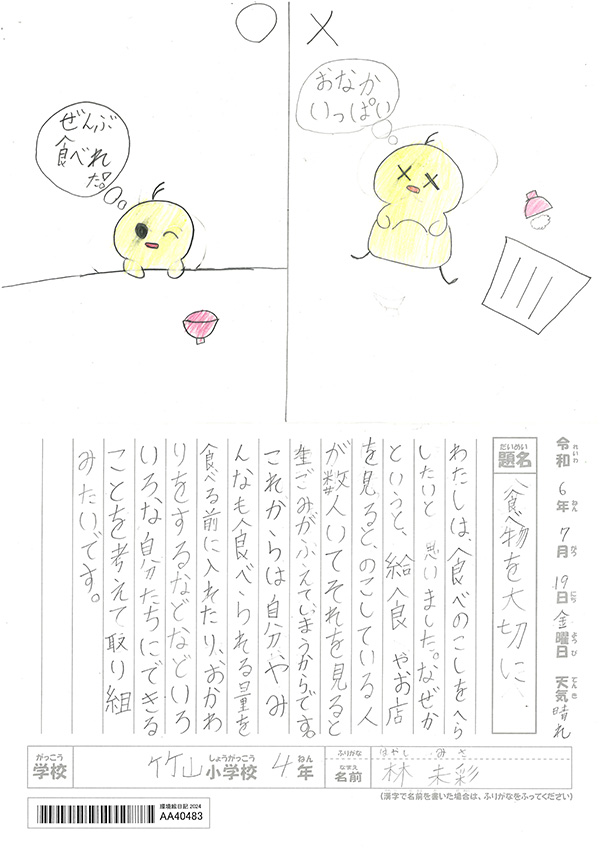 ○
×
ぜんぶ
食べれ
た。
おなか
いっぱい
令和 6年 7月 19日 金曜日 天気 晴れ
れいわ ねん がつ にち ようび てんき
だいめい
題名
食べ物を大切に
わたしは、食べのこしをへら
したいと思いました。なぜか
というと、給食やお店
を見ると、のこしている人
が数人いてそれを見ると
生ごみがふえてしまうからです。
これからは自分やみ
んなも食べられる量を
食べる前に入れたり、おかわ
りをするなどなどいろ
いろな自分たちにできる
ことを考えて取り組
みたいです。
がっこう
学校
竹山小学校 4年
しょうがっこう ねん
ふりがな はやし みさ
なまえ
名前 林 未彩
(漢字で名前を書いた場合は、ふりがなをふってください)
環境絵日記 2024
AA40483